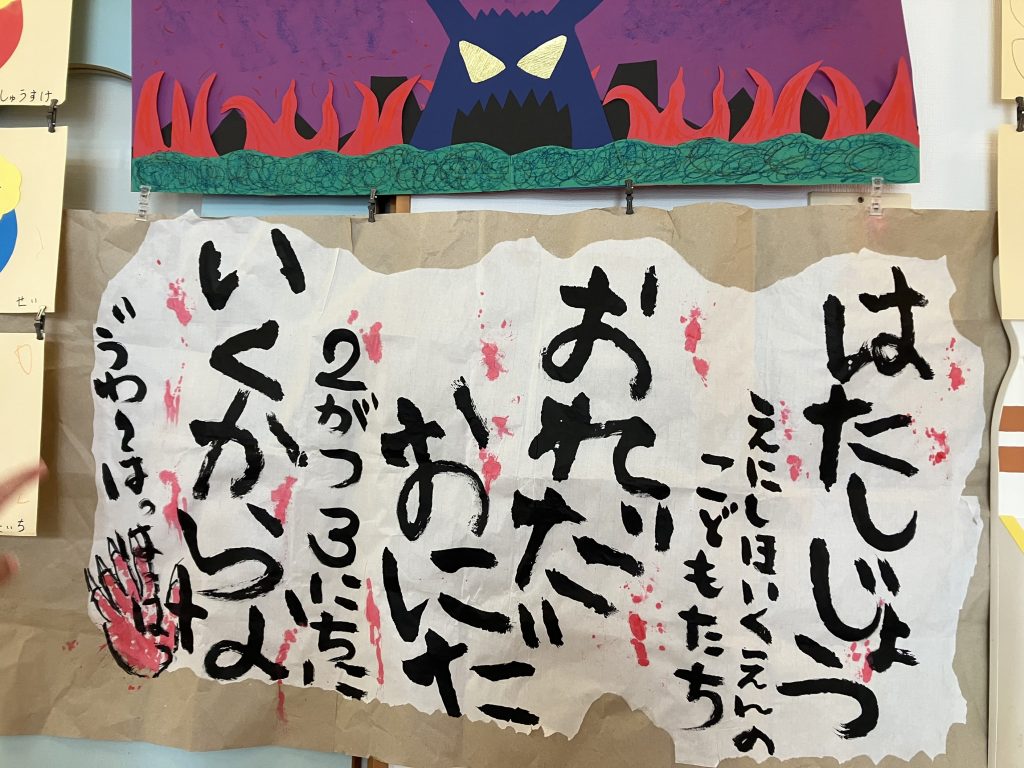 はたしじょう
えにしほいくえんの
こどもたち
おれだ
おにだ
2がつ3にちに
いくからな
ゔわ〜はっはっはっ
しゅうすけ
せい